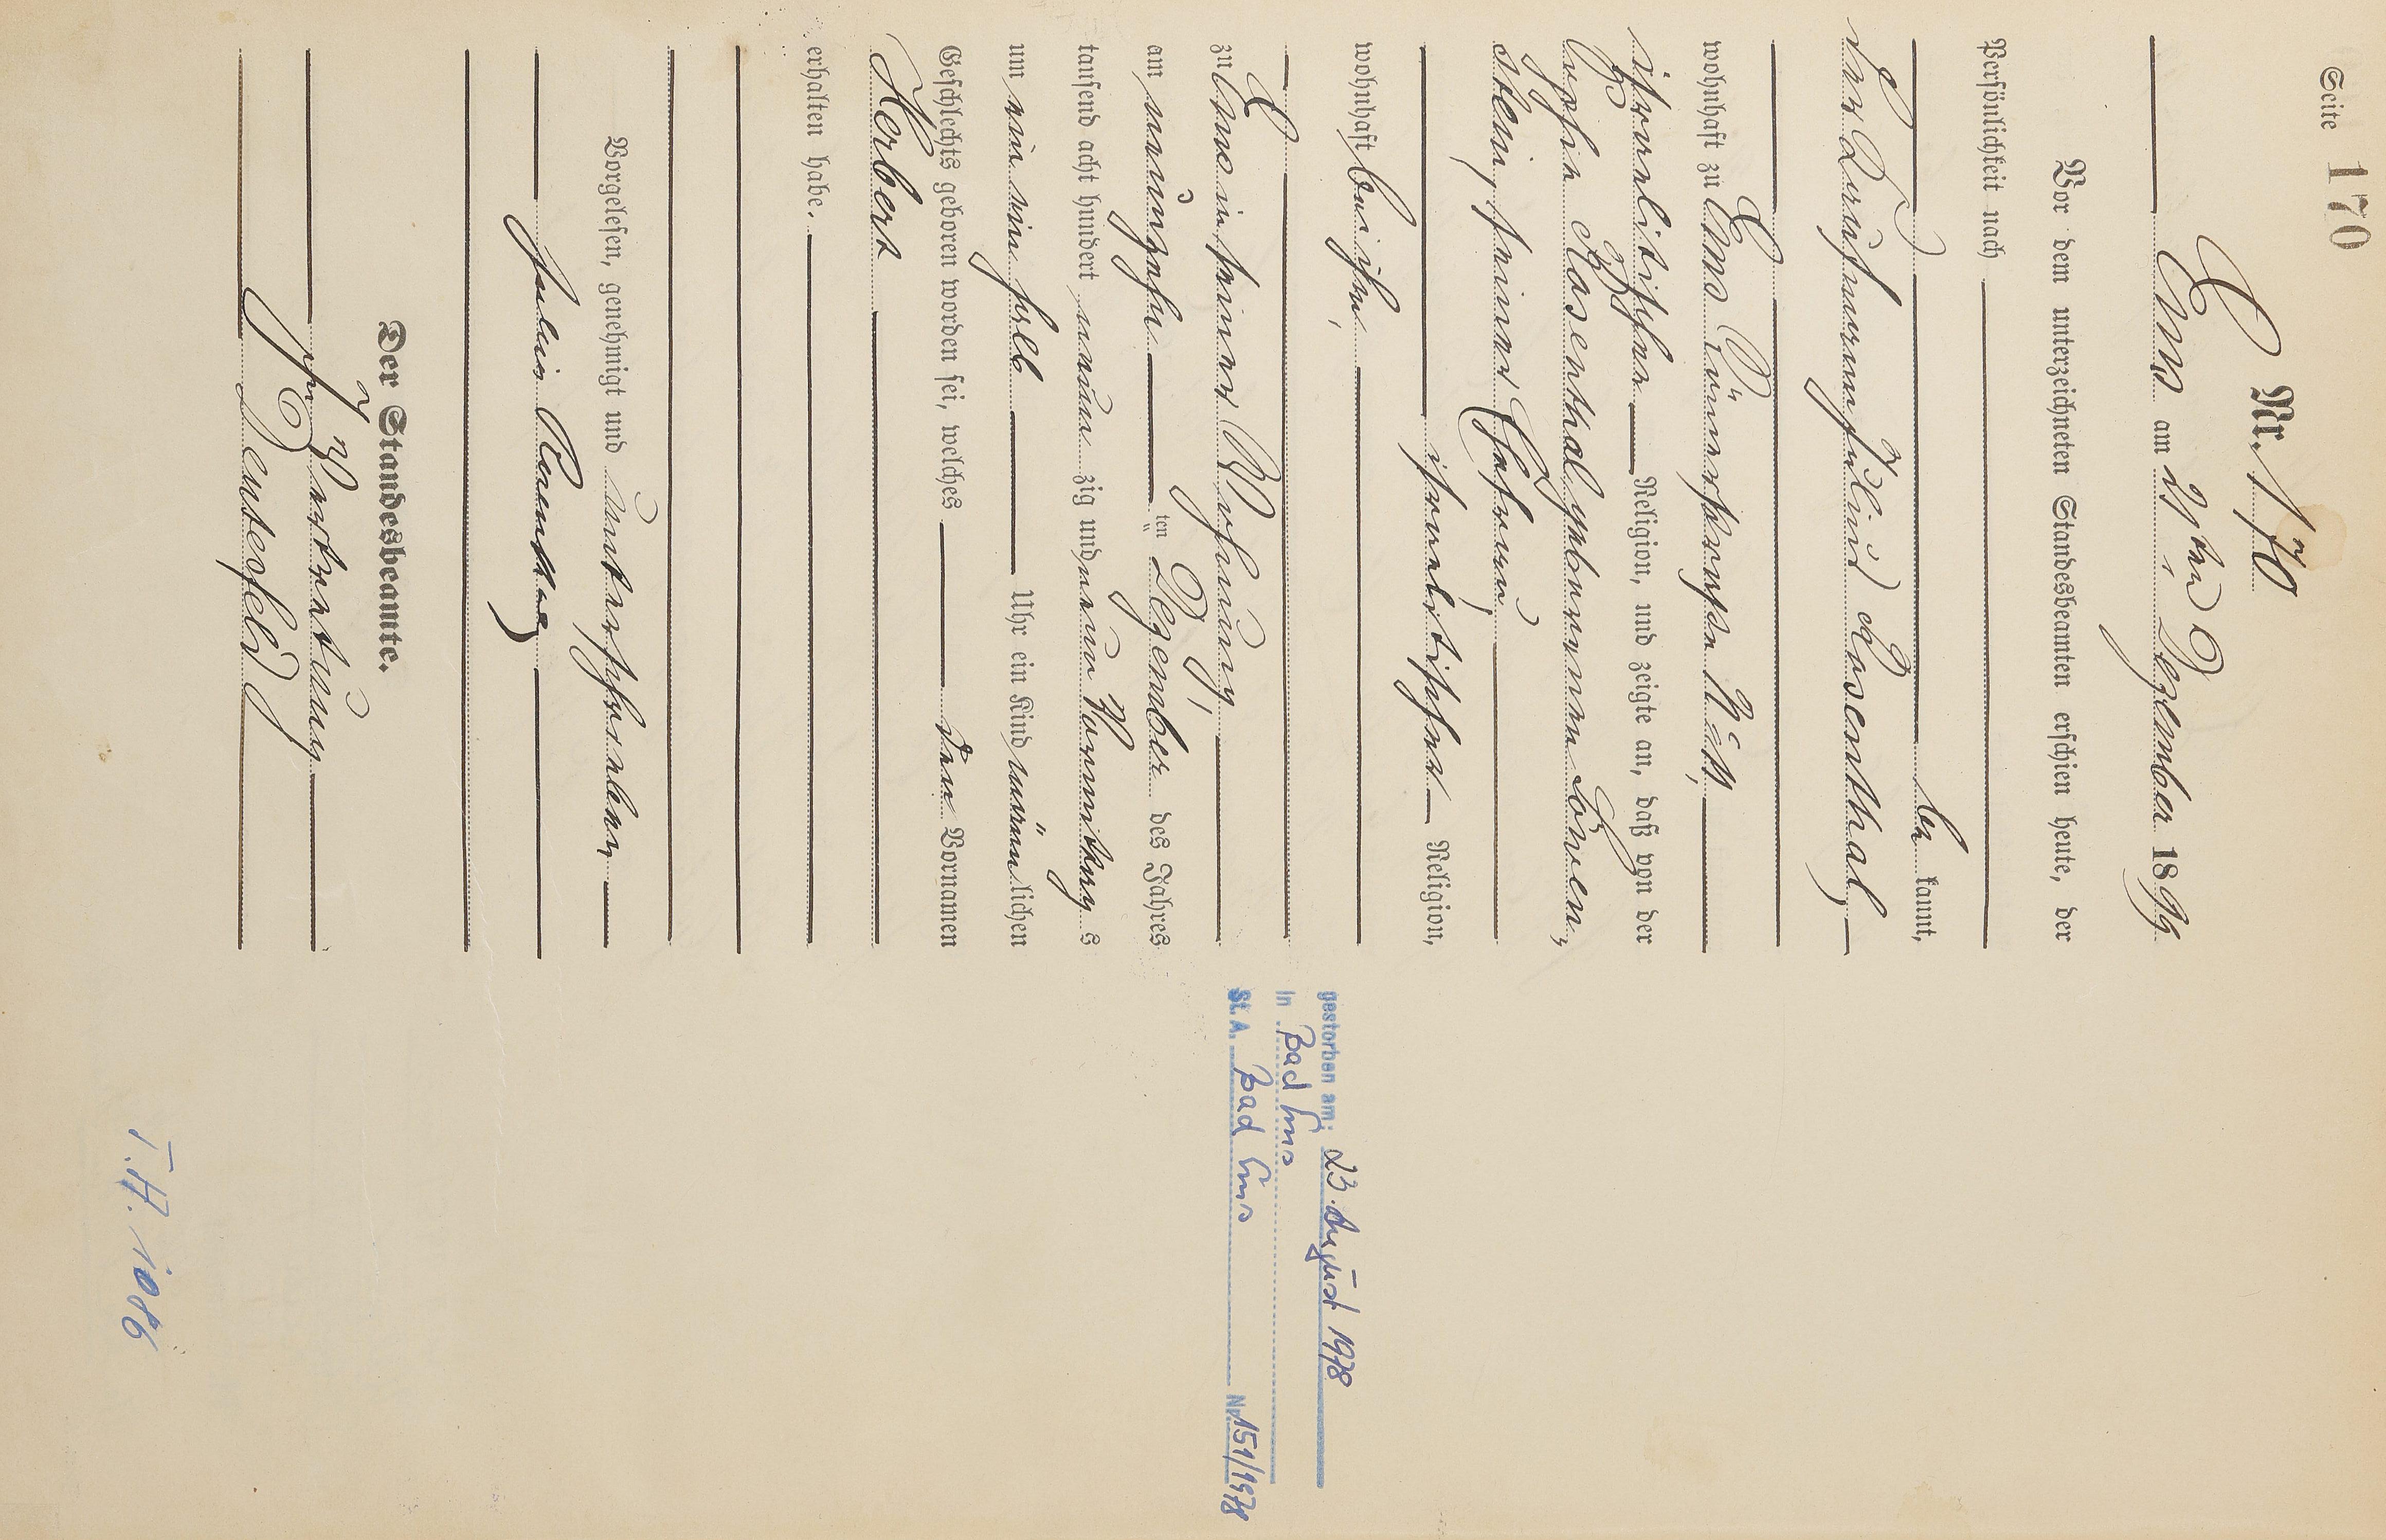 Seite 170
Nr. 170
Ems am 21ten Dezember 1899.
Vor dem unterzeichneten Standesbeamten erschien heute, der
Persönlichkeit nach
be kannt,
der Kaufmann Julius Rosenthal,
wohnhaft zu Ems Römerstrasse
israelitischer Religion, und zeigte an, daß von der
Rosenthal geborenen Löwen¬
stein, seiner Ehefrau,
israelitischer Religion,
wohnhaft bei ihm,
zu Ems in seiner Wohnung,
am neunzehn ten Dezember des Jahres
tausend acht hundert neun zig und neun Vormittag s
um ein ein halb Uhr ein Kind männ lichen
Geschlechts geboren worden sei, welches den Vornamen
Herbert
erhalten habe.
Vorgelesen, genehmigt und unterschrieben
Julius Rosenthal
Der Standesbeamte.
In Vertretung
gestorben am: 23. August 1978
in Bad Ems
St. A. Bad Ems Nr. 151/1978
T.H. 1086